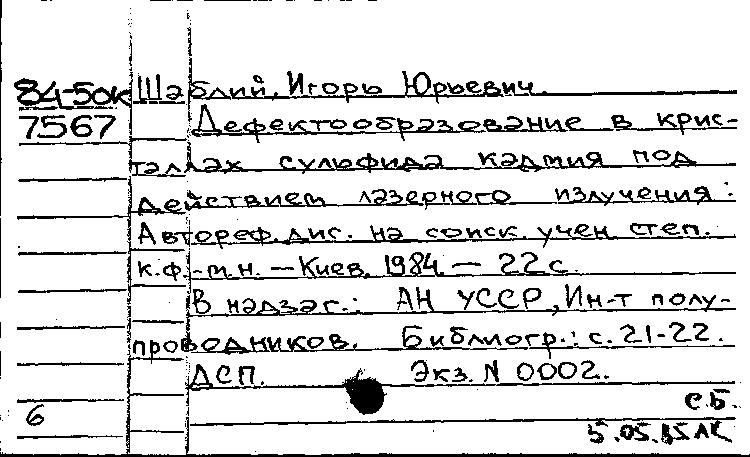 84-5ок Шаблий, Игорь Юрьевич.
7567 Дефектообразование в крис-
таллах сульфида кадмия под
действием лазерного излучения:
Автореф. дис. на соиск. учен. степ.
к.ф.-м.н. — Киев, 1984 — 22 с.
В надзаг.: АН УССР, Ин-т полу-
проводников. Библиогр.: с. 21-22.
ДСП. Экз. N 0002.
6 СБ.
5.05.85